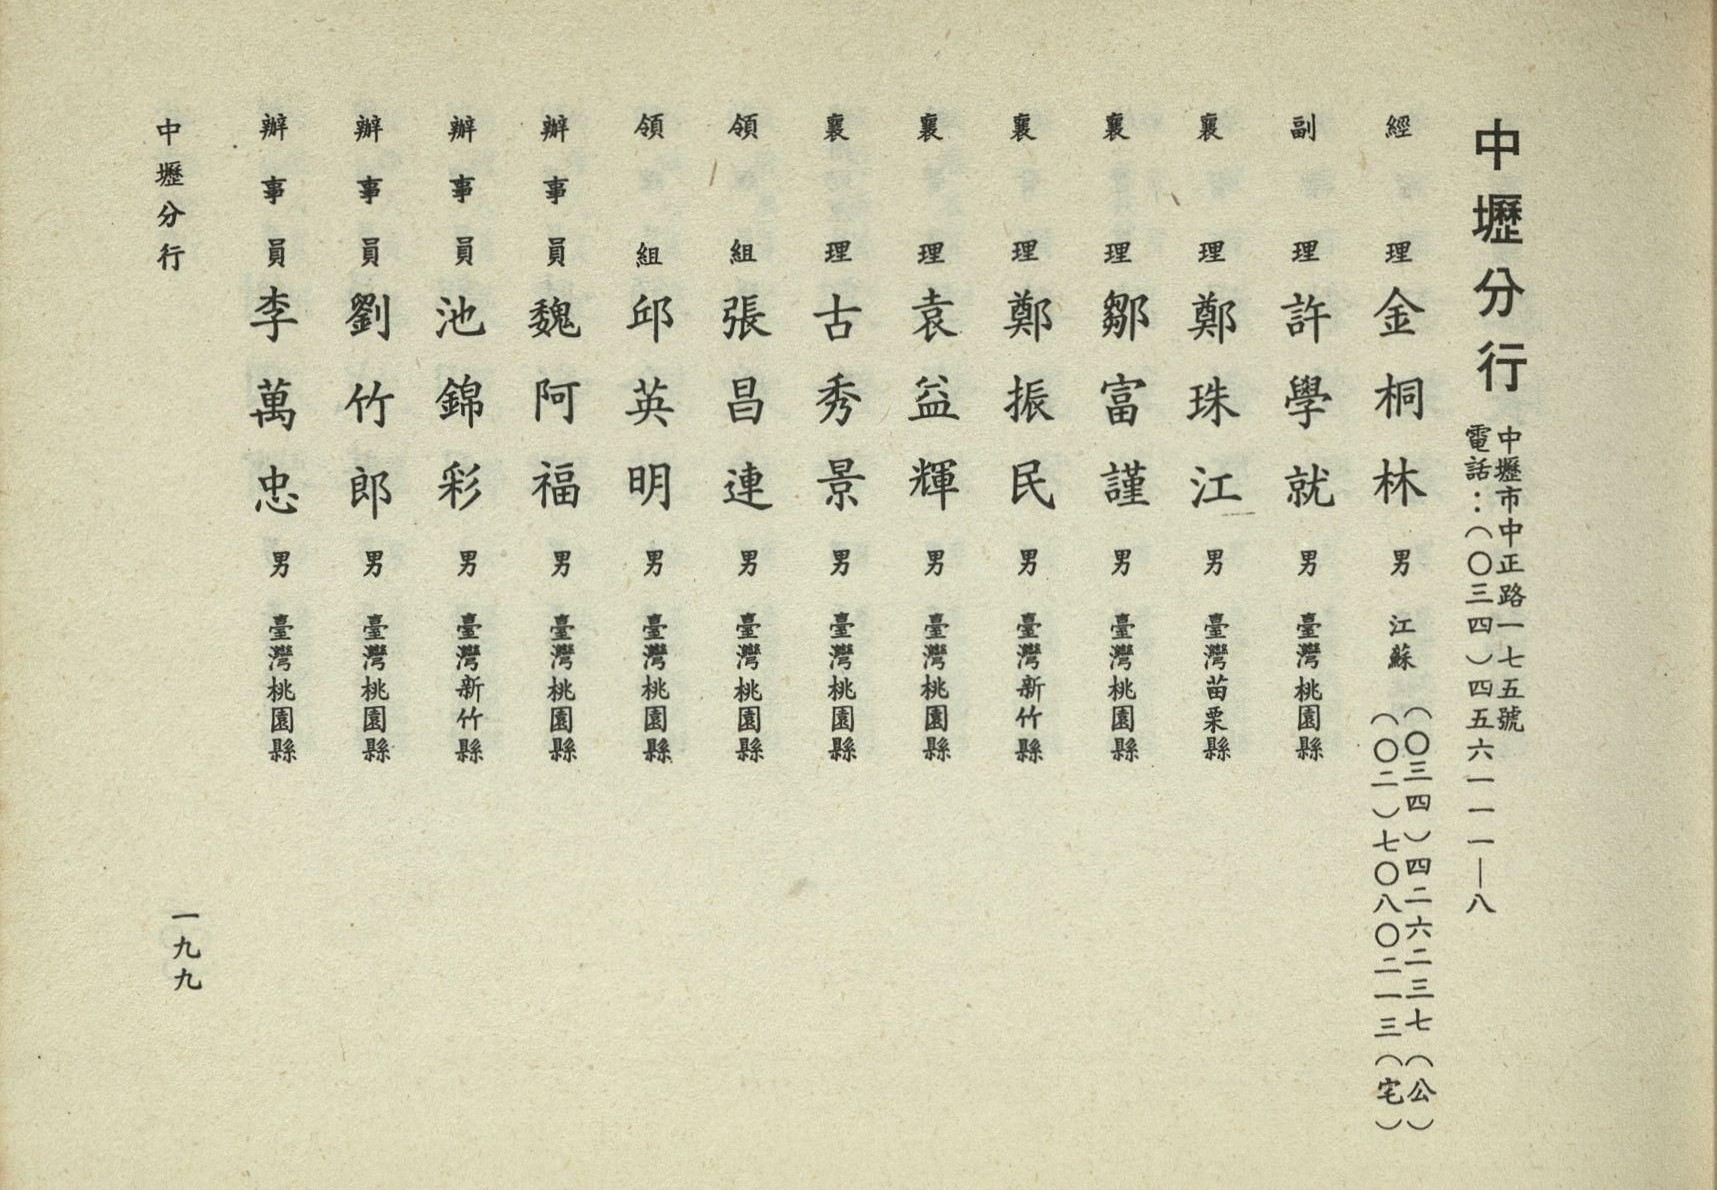 中壢分行
中壢市中正路一七五號
電話：（〇三四）四五六一一一—八
經理 金桐林 男 江蘇
（〇三四）四二六二三七（公）
（〇二）七〇八〇二一三（宅）
副理 許學就 男 臺灣桃園縣
襄理 鄭珠江 男 臺灣苗栗縣
襄理 鄒富謹 男 臺灣桃園縣
襄理 鄭振民 男 臺灣新竹縣
襄理 袁益輝 男 臺灣桃園縣
襄理 古秀景 男 臺灣桃園縣
領組 張昌連 男 臺灣桃園縣
領組 邱英明 男 臺灣桃園縣
辦事員 魏阿福 男 臺灣桃園縣
辦事員 池錦彩 男 臺灣新竹縣
辦事員 劉竹郎 男 臺灣桃園縣
辦事員 李萬忠 男 臺灣桃園縣
中壢分行
一九九